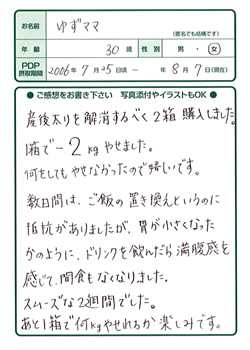 お名前 ゆずママ
(匿名でも結構です)
年齢 30歳 性別 男・女
PDP
摂取期間 2006年7月25日頃 ~ 8月7日(現在)
●ご感想をお書き下さい 写真添付やイラストもOK●
産後太りを解消するべく2箱購入しました。
1箱で-2kgやせました。
何をしてもやせなかったので嬉しいです。
数日間は、ご飯の置き換えというのに
抵抗がありましたが、胃が小さくなった
かのように、ドリンクを飲んだら満腹感を
感じて、間食もなくなりました。
スムーズな2週間でした。
あと1箱で何kgやせれるか楽しみです。